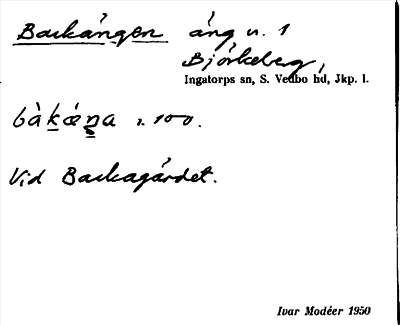 Backängen äng n. 1
Björkeberg,
Ingatorps sn, S. Vedbo hd, Jkp. l.
bàkæŋa r. 100.
Vid Backagärdet.
Ivar Modéer 1950